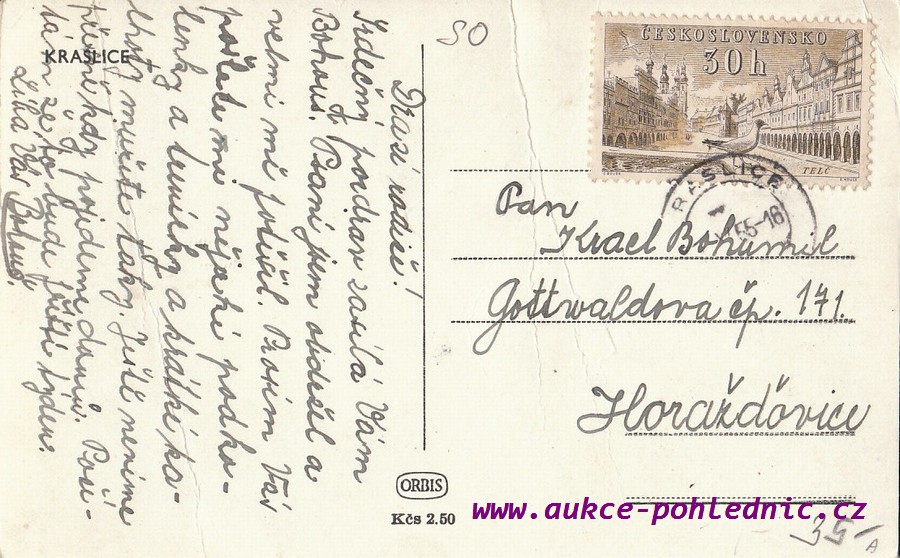 KRASLICE
Drazí rodiče!
Srdečný pozdrav zasílá Vám
Bohouš. Psaní jsem obdržel a
velmi mě potěšil. Prosím Vás
pošlete mi nějaké podko-
lenky a tenisky a krátké ka-
lhoty můžete taky. Ještě nevíme
přesně kdy pojedeme domů. Počí-
tám že to bude příští týden.
Líbá Vás Bohouš.
SO
ČESKOSLOVENSKO
30h
TELČ
KRASLICE
55-16
Pan
Krael Bohumil
Gottwaldova čp. 171.
Horažďovice
ORBIS
Kčs 2.50
www.aukce-pohlednic.cz
35-
A